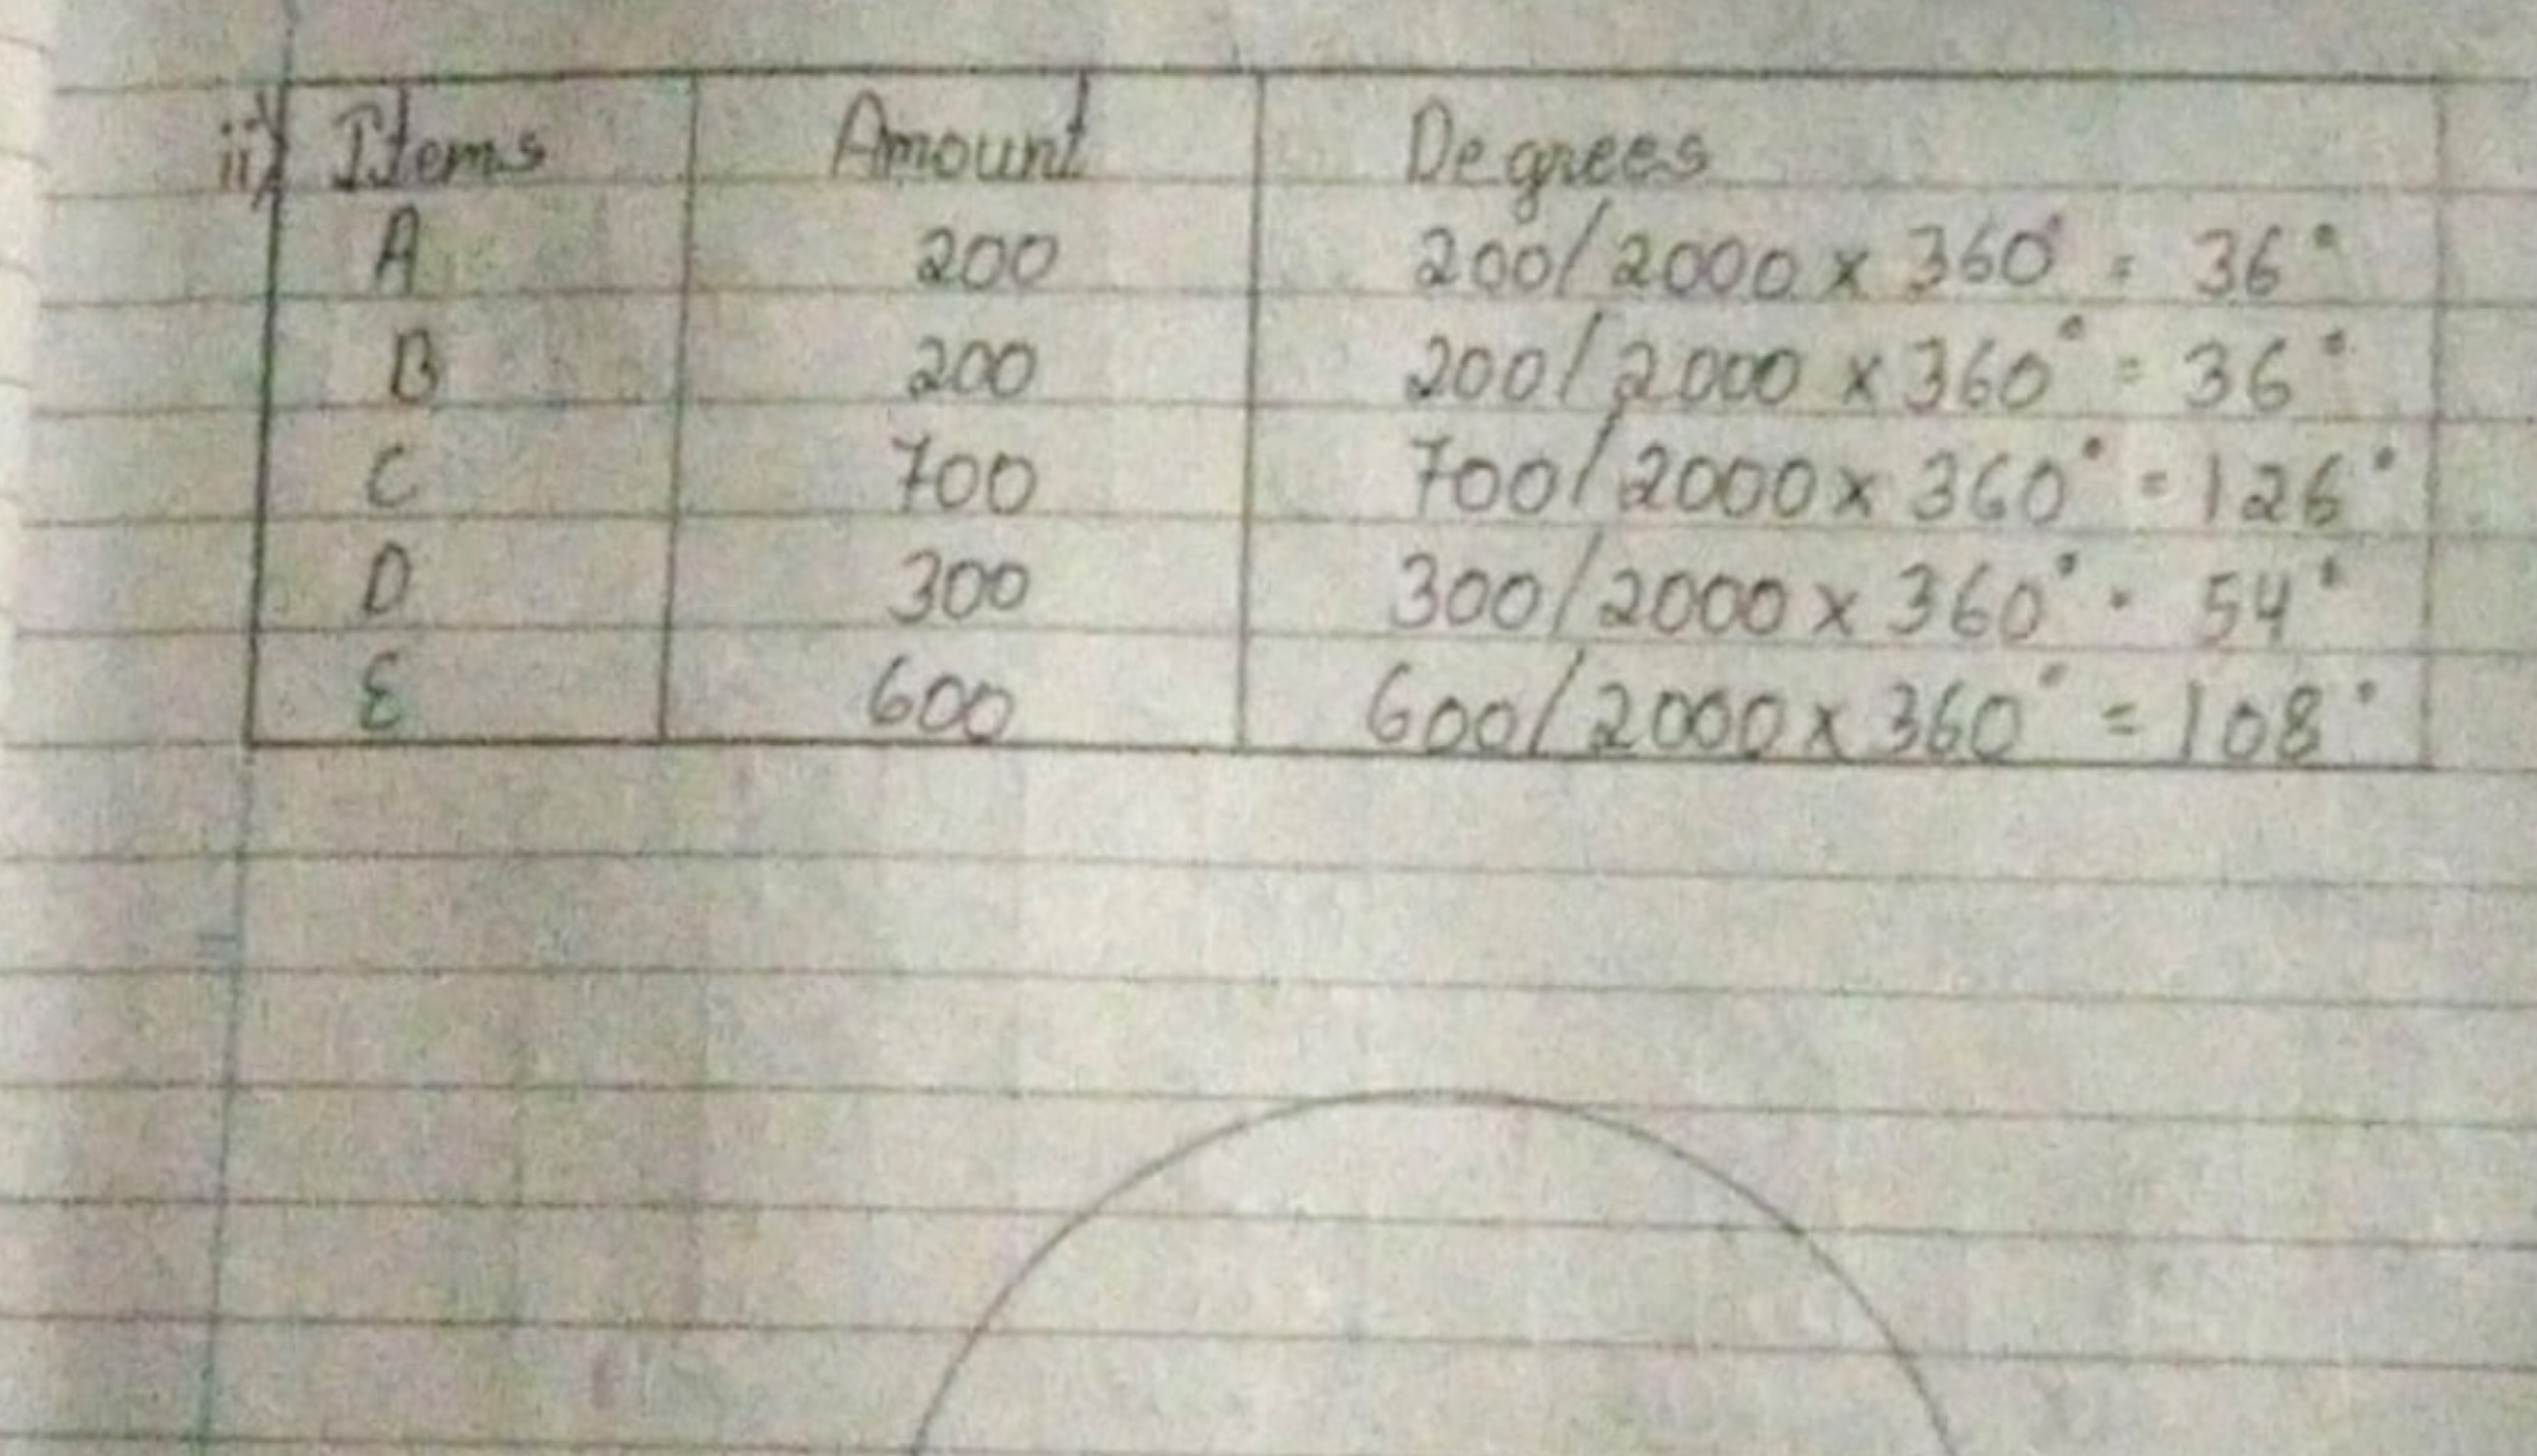 ii) Items Amount Degrees
A 200 200/2000 x 360° = 36°
B 200 200/2000 x 360° = 36°
C 700 700/2000 x 360° = 126°
D 300 300/2000 x 360° = 54°
E 600 600/2000 x 360° = 108°